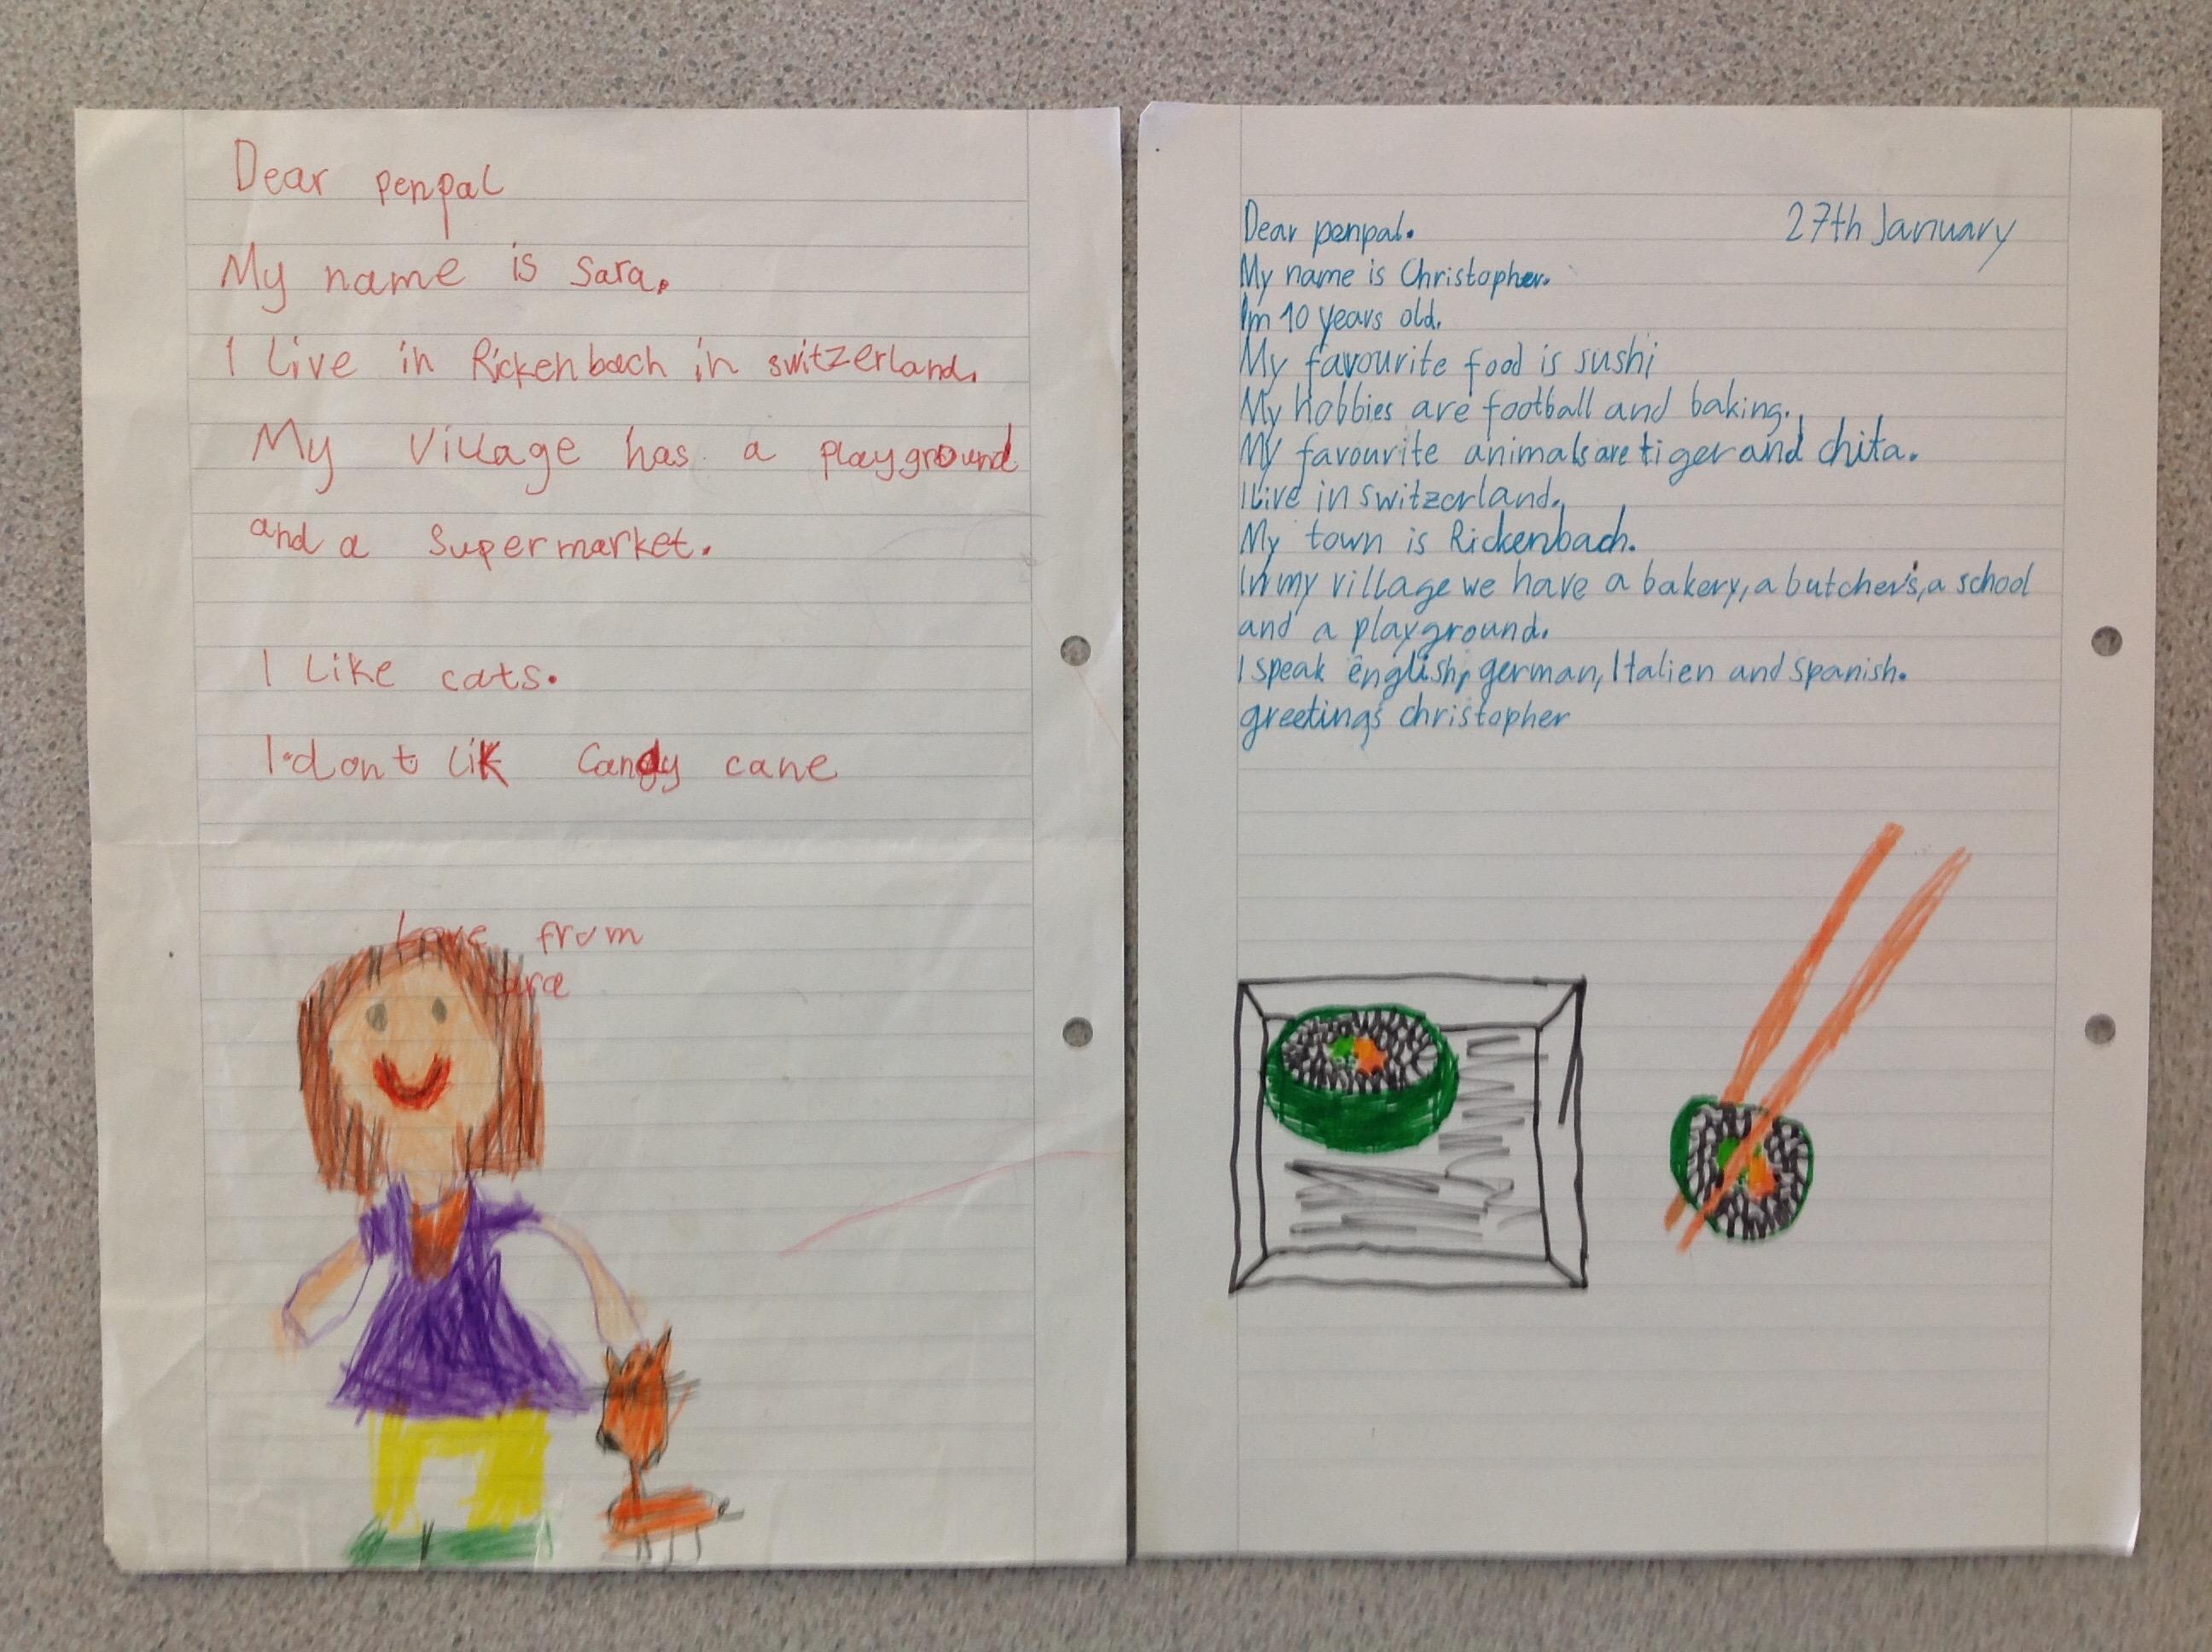 Dear penpal
My name is Sara.
I live in Rickenbach in switzerland.
My village has a playground
and a supermarket.
I like cats.
I dont lik Candy cane
Love from
Sara
Dear penpal. 27th January
My name is Christopher.
I'm 10 years old.
My favourite food is sushi
My hobbies are football and baking.
My favourite animals are tiger and chita.
I live in switzerland.
My town is Rickenbach.
In my village we have a bakery, a butcher's, a school
and a playground.
I speak english, german, Italien and spanish.
greetings christopher